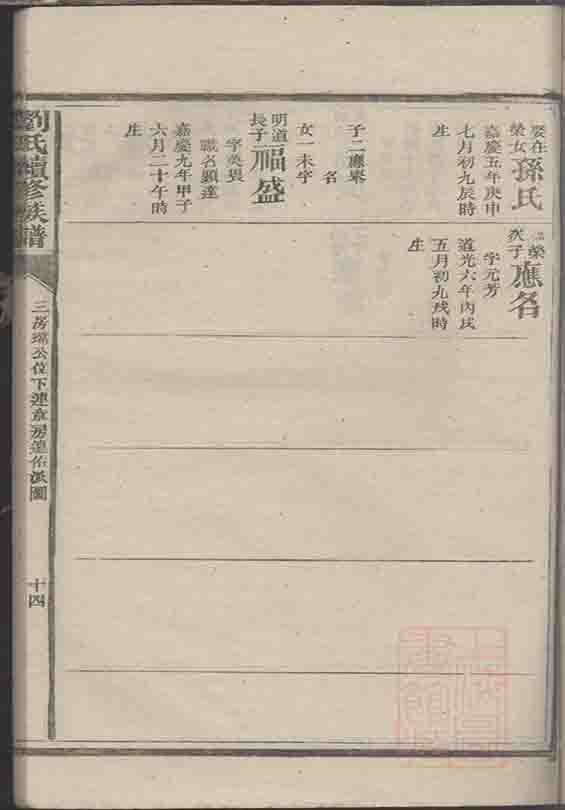 娶在
榮女
孫氏
嘉慶五年庚申
七月初九辰時
生
子二應舉
名
女一未字
明道
長子
福盛
字英畏
職名顯達
嘉慶九年甲子
六月二十午時
生
榮
次子
應名
字元芳
道光六年丙戌
五月初九戌時
生
劉氏續修族譜
三房
公位下連章房
佑派圖
十四